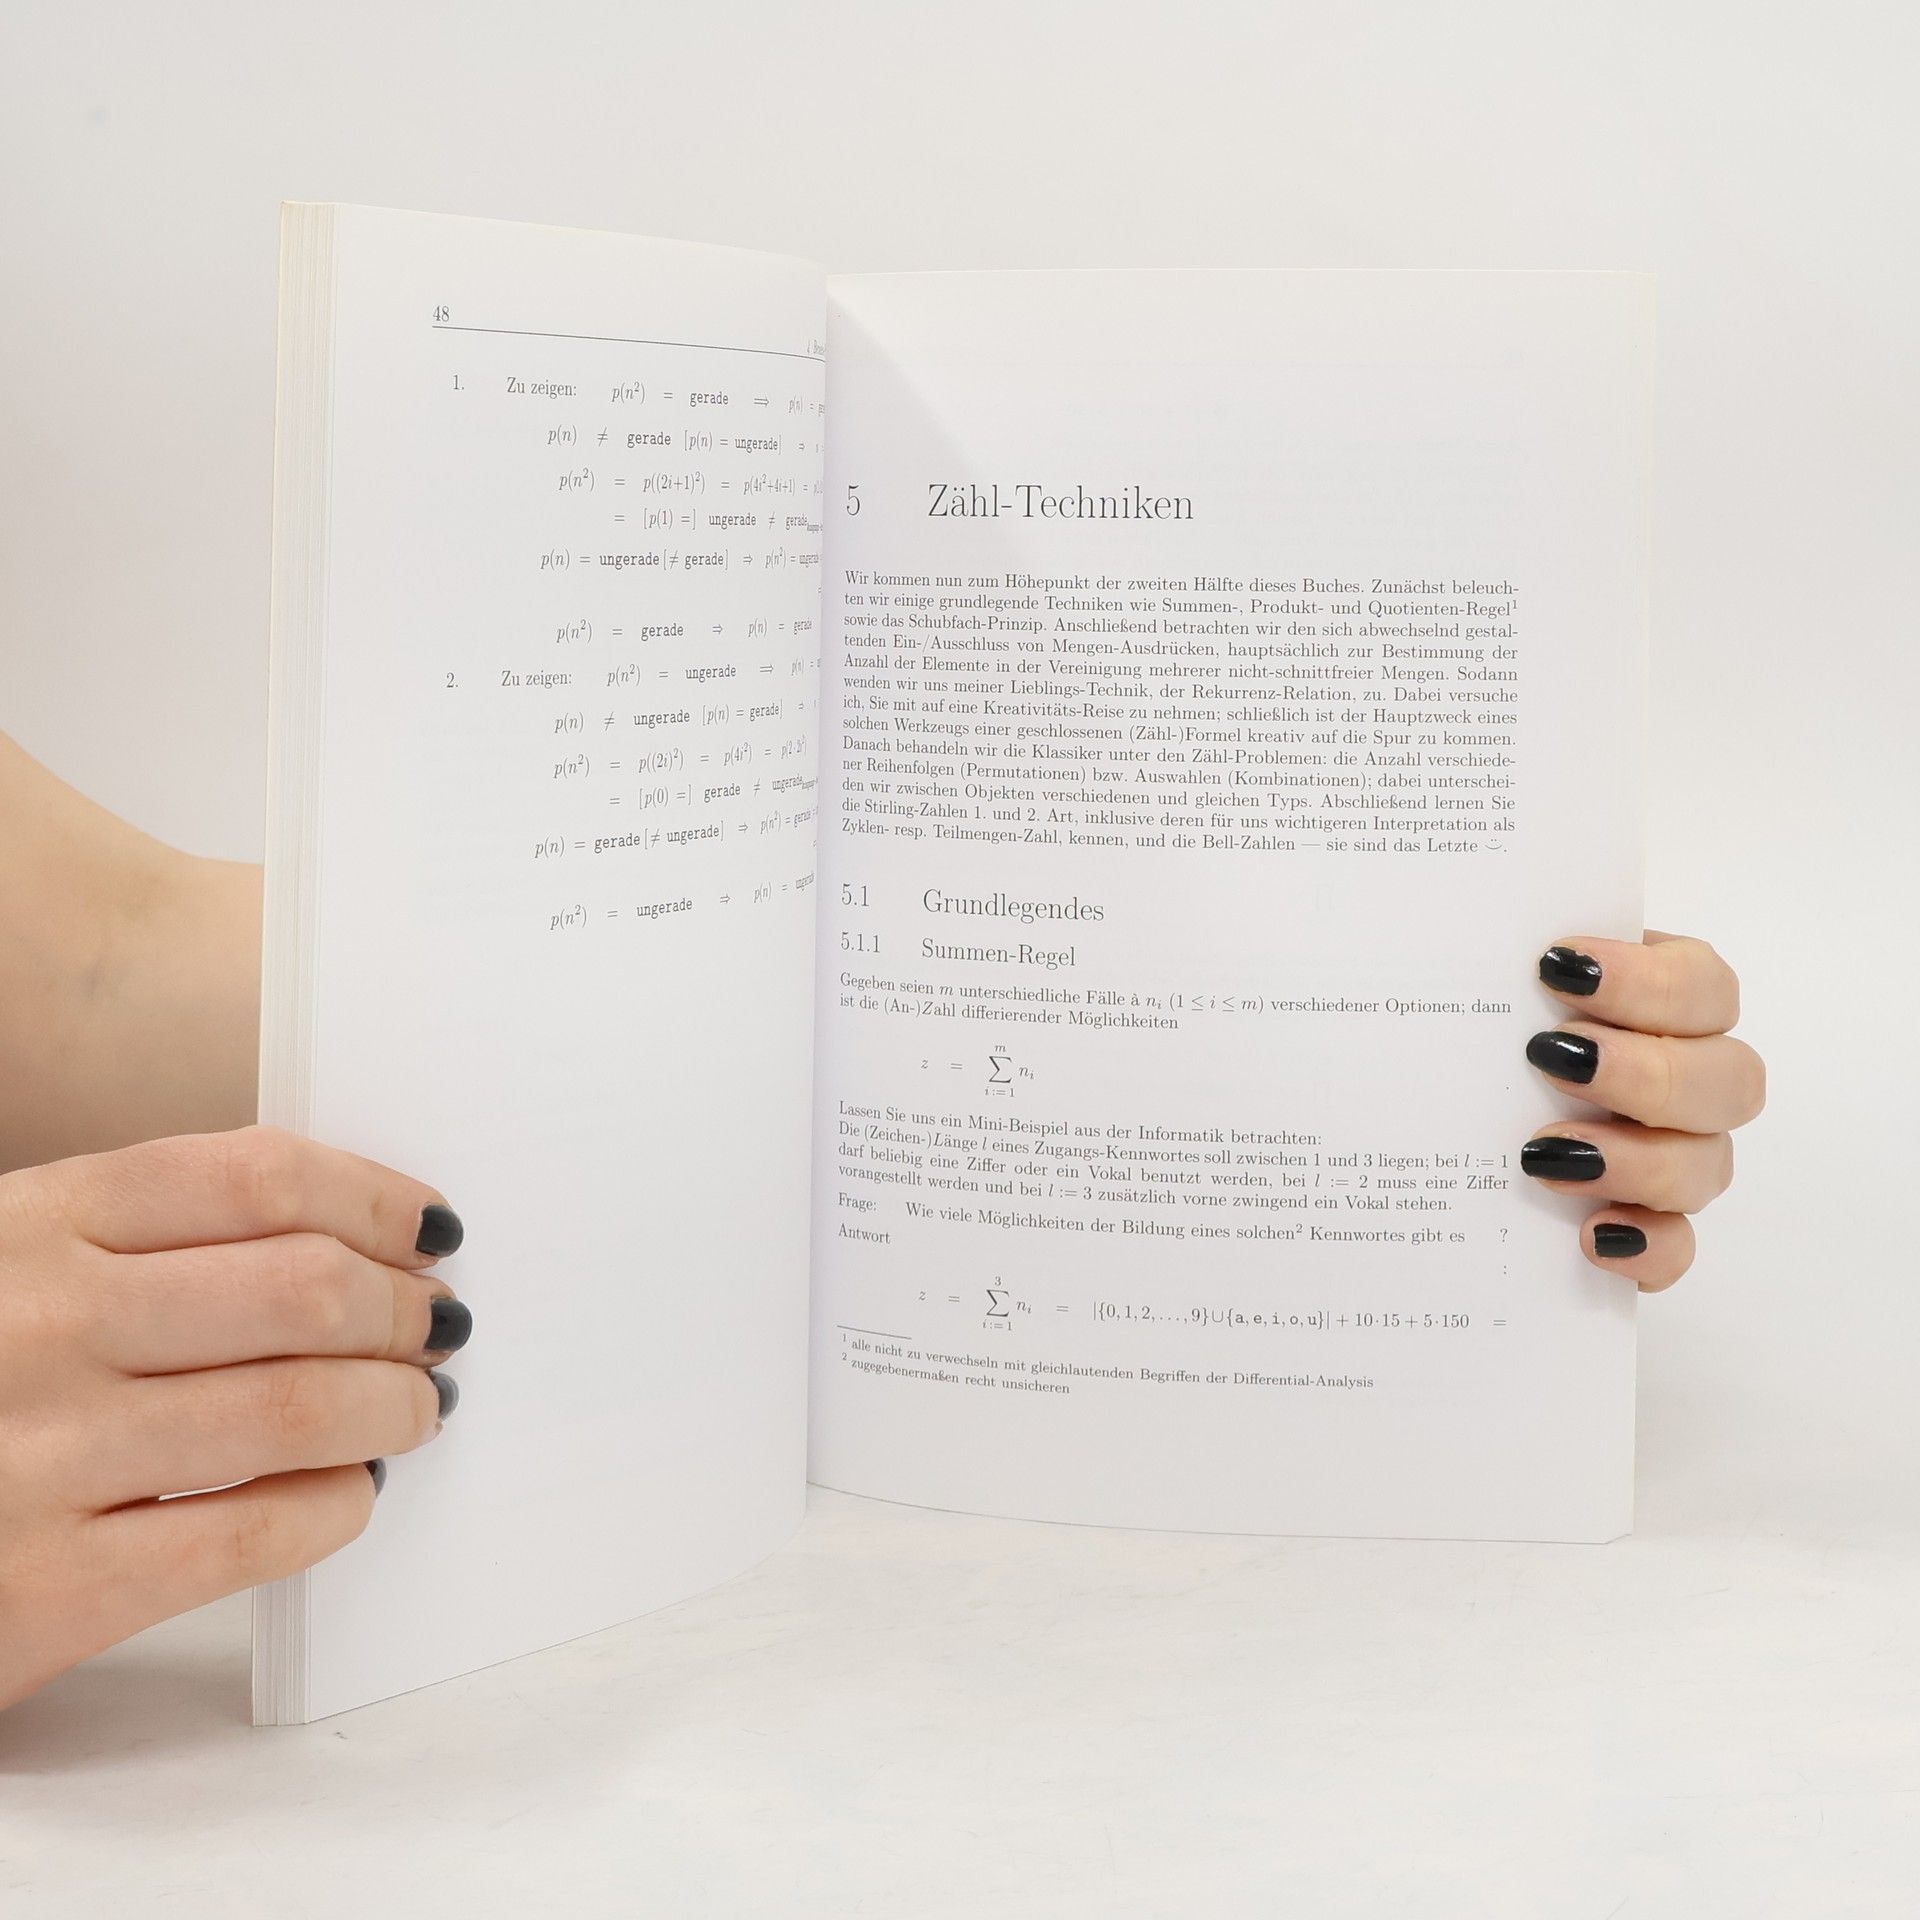 48
1. Zu zeigen: p(n²) = gerade ⟹ p(n) =
p(n) ≠ gerade [p(n) = ungerade] ⇒
p(n²) = p((2i+1)²) = p(4i²+4i+1) =
= [p(1) =] ungerade ≠ gerade
p(n) = ungerade [≠ gerade] ⇒ p(n²) = ungerade
p(n²) = gerade ⇒ p(n) = gerade
2. Zu zeigen: p(n²) = ungerade ⟹ p(n) =
p(n) ≠ ungerade [p(n) = gerade] ⇒
p(n²) = p((2i)²) = p(4i²) = p(2·2i²)
= [p(0) =] gerade ≠ ungerade
p(n) = gerade [≠ ungerade] ⇒ p(n²) = gerade
p(n²) = ungerade ⇒ p(n) = ungerade
5 Zähl-Techniken
Wir kommen nun zum Höhepunkt der zweiten Hälfte dieses Buches. Zunächst beleuch-
ten wir einige grundlegende Techniken wie Summen-, Produkt- und Quotienten-Regel¹
sowie das Schubfach-Prinzip. Anschließend betrachten wir den sich abwechselnd gestal-
tenden Ein-/Ausschluss von Mengen-Ausdrücken, hauptsächlich zur Bestimmung der
Anzahl der Elemente in der Vereinigung mehrerer nicht-schnittfreier Mengen. Sodann
wenden wir uns meiner Lieblings-Technik, der Rekurrenz-Relation, zu. Dabei versuche
ich, Sie mit auf eine Kreativitäts-Reise zu nehmen; schließlich ist der Hauptzweck eines
solchen Werkzeugs einer geschlossenen (Zähl-)Formel kreativ auf die Spur zu kommen.
Danach behandeln wir die Klassiker unter den Zähl-Problemen: die Anzahl verschiede-
ner Reihenfolgen (Permutationen) bzw. Auswahlen (Kombinationen); dabei unterschei-
den wir zwischen Objekten verschiedenen und gleichen Typs. Abschließend lernen Sie
die Stirling-Zahlen 1. und 2. Art, inklusive deren für uns wichtigeren Interpretation als
Zyklen- resp. Teilmengen-Zahl, kennen, und die Bell-Zahlen — sie sind das Letzte ☺.
5.1 Grundlegendes
5.1.1 Summen-Regel
Gegeben seien m unterschiedliche Fälle à nᵢ (1 ≤ i ≤ m) verschiedener Optionen; dann
ist die (An-)Zahl differierender Möglichkeiten
m
z = ∑ nᵢ
i := 1 .
Lassen Sie uns ein Mini-Beispiel aus der Informatik betrachten:
Die (Zeichen-)Länge l eines Zugangs-Kennwortes soll zwischen 1 und 3 liegen; bei l := 1
darf beliebig eine Ziffer oder ein Vokal benutzt werden, bei l := 2 muss eine Ziffer
vorangestellt werden und bei l := 3 zusätzlich vorne zwingend ein Vokal stehen.
Frage: Wie viele Möglichkeiten der Bildung eines solchen² Kennwortes gibt es ?
Antwort :
3
z = ∑ nᵢ = |{0, 1, 2, . . . , 9}∪{a, e, i, o, u}| + 10·15 + 5·150 =
i := 1
¹ alle nicht zu verwechseln mit gleichlautenden Begriffen der Differential-Analysis
² zugegebenermaßen recht unsicheren